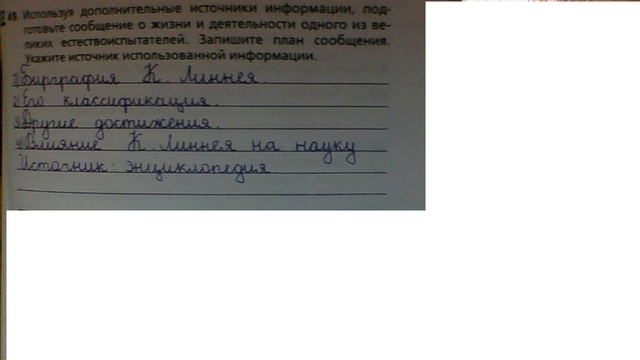 49. Используя дополнительные источники информации, под-
готовьте сообщение о жизни и деятельности одного из ве-
ликих естествоиспытателей. Запишите план сообщения.
Укажите источник использованной информации.
1) Биография К. Линнея.
2) Его классификация.
3) Другие достижения.
4) Влияние К. Линнея на науку
Источник: энциклопедия